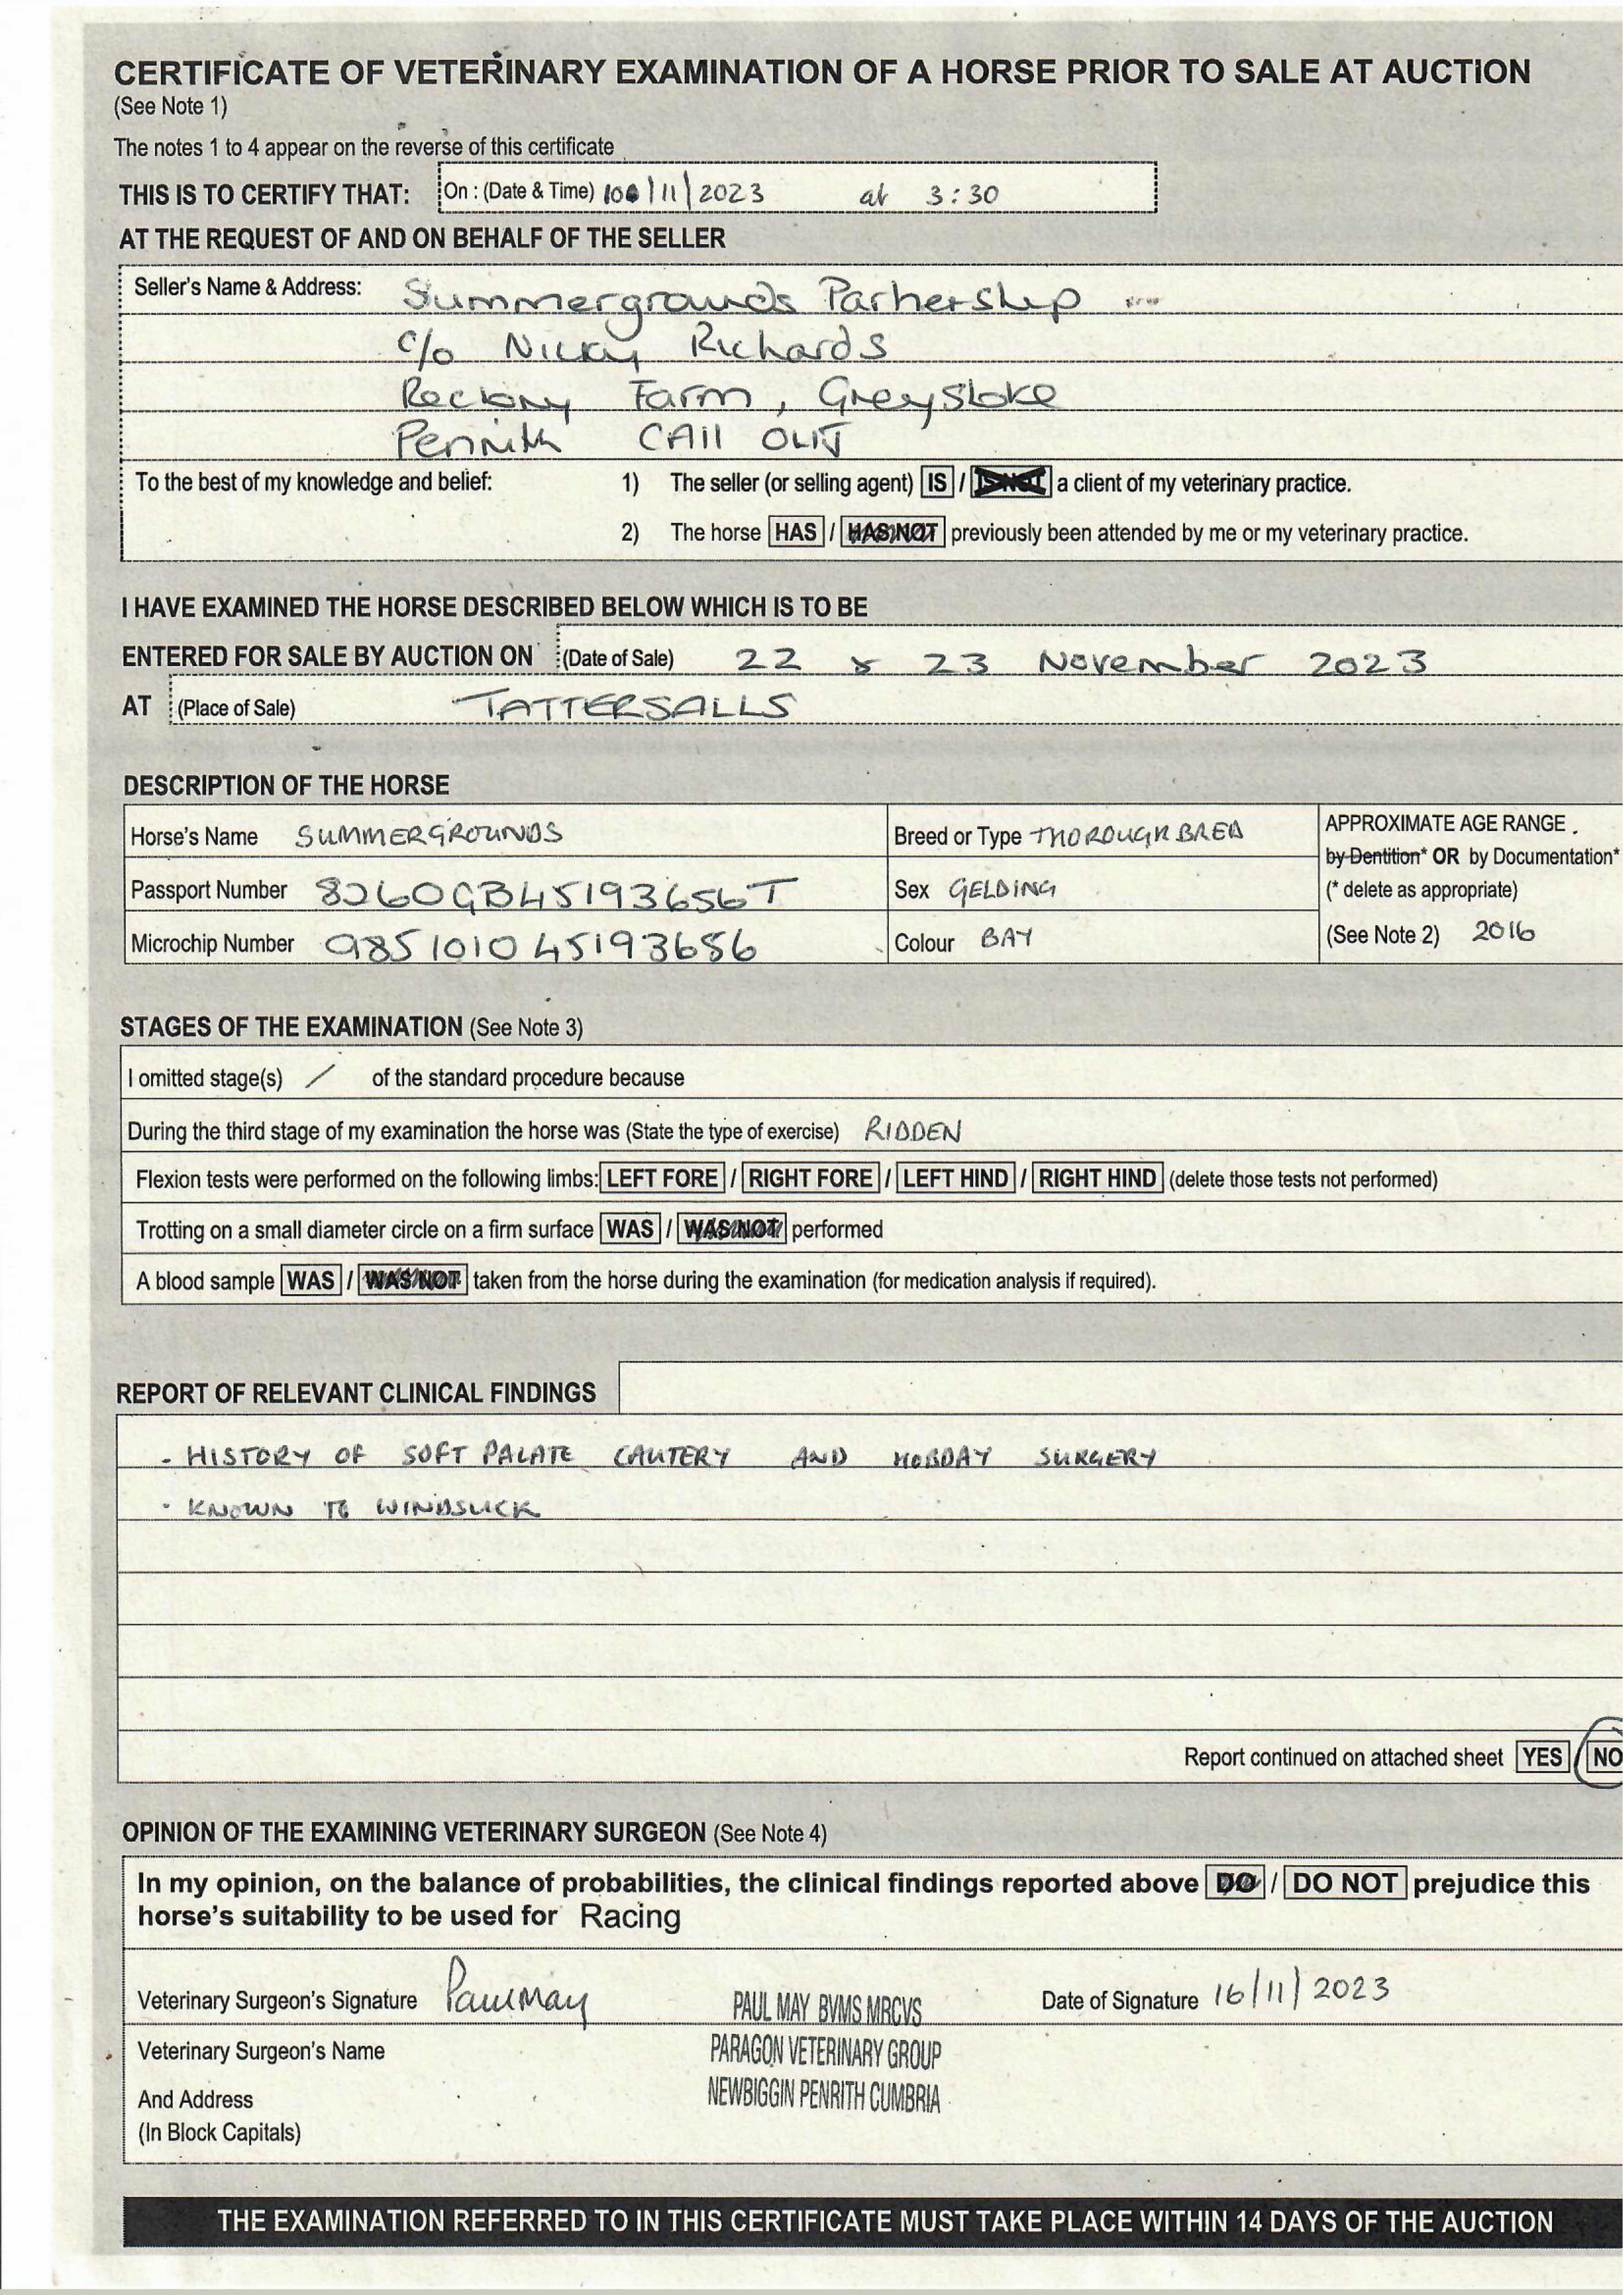 CERTIFICATE OF VETERINARY EXAMINATION OF A HORSE PRIOR TO SALE AT AUCTION
(See Note 1)
The notes 1 to 4 appear on the reverse of this certificate
THIS IS TO CERTIFY THAT: On : (Date & Time) /11/2023 at 3:30
AT THE REQUEST OF AND ON BEHALF OF THE SELLER
Seller's Name & Address: Summergrounds Partnership
c/o Nicky Richards
Rectory Farm, Greystoke
Penrith CA11 0UJ
To the best of my knowledge and belief: 1) The seller (or selling agent) IS / IS NOT a client of my veterinary practice.
2) The horse HAS / HAS NOT previously been attended by me or my veterinary practice.
I HAVE EXAMINED THE HORSE DESCRIBED BELOW WHICH IS TO BE
ENTERED FOR SALE BY AUCTION ON (Date of Sale) 22 & 23 November 2023
AT (Place of Sale) TATTERSALLS
DESCRIPTION OF THE HORSE
Horse's Name SUMMERGROUNDS Breed or Type THOROUGHBRED APPROXIMATE AGE RANGE
by Dentition* OR by Documentation*
Passport Number 8260GB45193656T Sex GELDING (* delete as appropriate)
Microchip Number 985101045193656 Colour BAY (See Note 2) 2016
STAGES OF THE EXAMINATION (See Note 3)
I omitted stage(s) / of the standard procedure because
During the third stage of my examination the horse was (State the type of exercise) RIDDEN
Flexion tests were performed on the following limbs: LEFT FORE / RIGHT FORE / LEFT HIND / RIGHT HIND (delete those tests not performed)
Trotting on a small diameter circle on a firm surface WAS / WAS NOT performed
A blood sample WAS / WAS NOT taken from the horse during the examination (for medication analysis if required).
REPORT OF RELEVANT CLINICAL FINDINGS
- HISTORY OF SOFT PALATE CAUTERY AND HOBDAY SURGERY
- KNOWN TO WINDSUCK
Report continued on attached sheet YES / NO
OPINION OF THE EXAMINING VETERINARY SURGEON (See Note 4)
In my opinion, on the balance of probabilities, the clinical findings reported above DO / DO NOT prejudice this
horse's suitability to be used for Racing
Veterinary Surgeon's Signature Paul May PAUL MAY BVMS MRCVS Date of Signature 16/11/2023
Veterinary Surgeon's Name PARAGON VETERINARY GROUP
And Address NEWBIGGIN PENRITH CUMBRIA
(In Block Capitals)
THE EXAMINATION REFERRED TO IN THIS CERTIFICATE MUST TAKE PLACE WITHIN 14 DAYS OF THE AUCTION